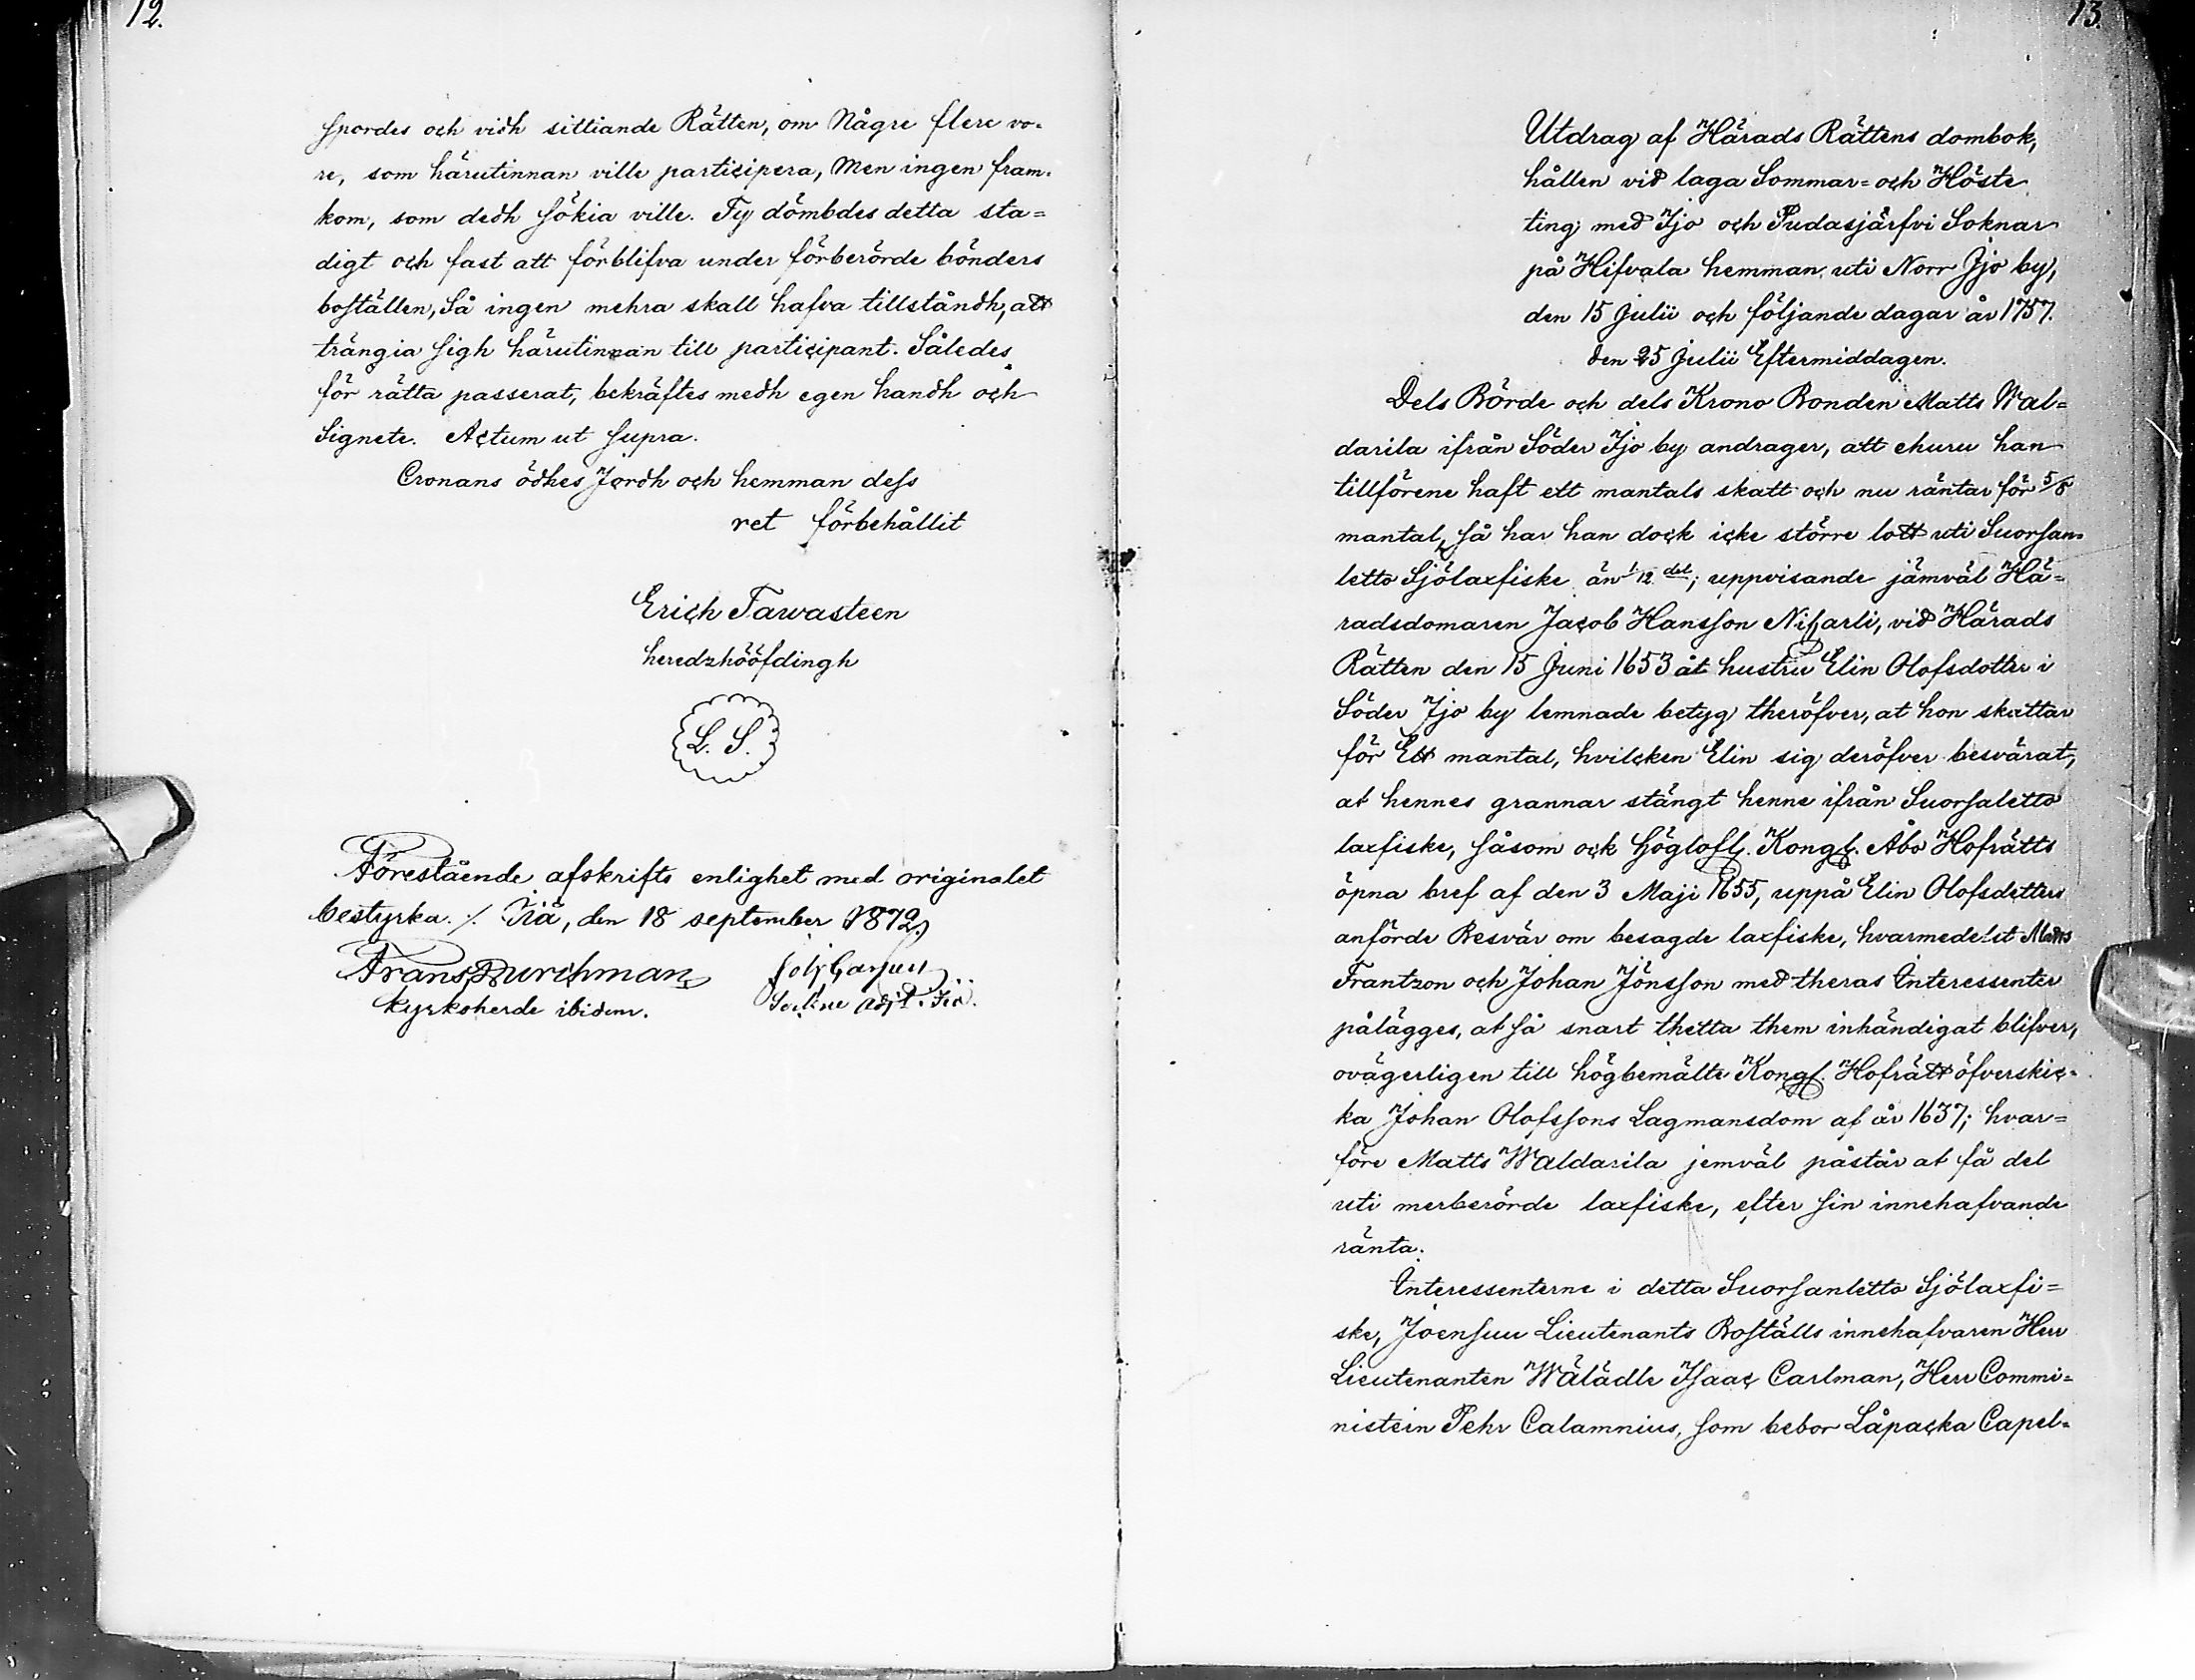 12.
spordes och vidh sittiande Rätten, om Någre flere vo-
re, som härutinnan ville participera, Men ingen fram-
kom, som dedh sökia ville. Ty dömbdes detta sta=
digt och fast att förblifva under förberörde bönders
boställen, Så ingen mehra skall hafva tillståndh, att
trängia sigh härutinnan till participant. Således
för rätta passerat, bekräftes medh egen handh och
Signete. Actum ut supra.
Cronans ödhes Jordh och hemman dess
ret förbehållit
Erich Tawasteen
heredzhööfdingh
L. S.
Förestående afskrifts enlighet med originalet
bestyrka. ⁒ Iiå, den 18 september 1872.
Frans Durchman
Kyrkoherde ibidem.
13.
Utdrag af Härads Rättens dombok,
hållen vid laga Sommar= och Höste
ting med Ijo och Pudasjärfvi Soknar
på Hifvala hemman uti Norr Ijo by,
den 15 Julii och följande dagar år 1757.
den 25 Julii Eftermiddagen.
Dels Börde och dels Krono Bonden Matts Wal=
darila ifrån Söder Ijo by andrager, att ehuru han
tillförene haft ett mantals skatt och nu räntar för 5/8
mantal, så har han dock icke större lott uti Suorsan-
letto Sjölaxfiske än 1/12 del; uppvisande jämväl Hä=
radsdomaren Jacob Hansson Nissarli, vid Härads
Rätten den 15 Juni 1653 åt hustru Elin Olofsdotter i
Söder Ijo by lemnade betyg theröfver, at hon skattar
för Ett mantal, hvilcken Elin sig deröfver besvärat,
at hennes grannar stängt henne ifrån Suorsaletto
laxfiske, såsom ock Höglofl. Kongl. Åbo Hofrätts
öpna bref af den 3 Maji 1655, uppå Elin Olofsdotters
anförde Besvär om besagde laxfiske, hvarmedelst Matts
Frantzon och Johan Jönsson med theras Interessenter
pålägges, at så snart thetta them inhändigat blifver,
ovägerligen till högbemälte Kongl. Hofrätt öfverskic-
ka Johan Olofssons Lagmansdom af år 1637; hvar=
före Matts Waldarila jemväl påstår at få del
uti merberörde laxfiske, efter sin innehafvande
ränta.
Interessenterne i detta Suorsanletto Sjölaxfi=
ske, Joensuu Lieutenants Boställs innehafvaren Herr
Lieutenanten Wälädle Isaac Carlman, Herr Commi=
nistern Pehr Calamnius, som bebor Låpacka Capel-